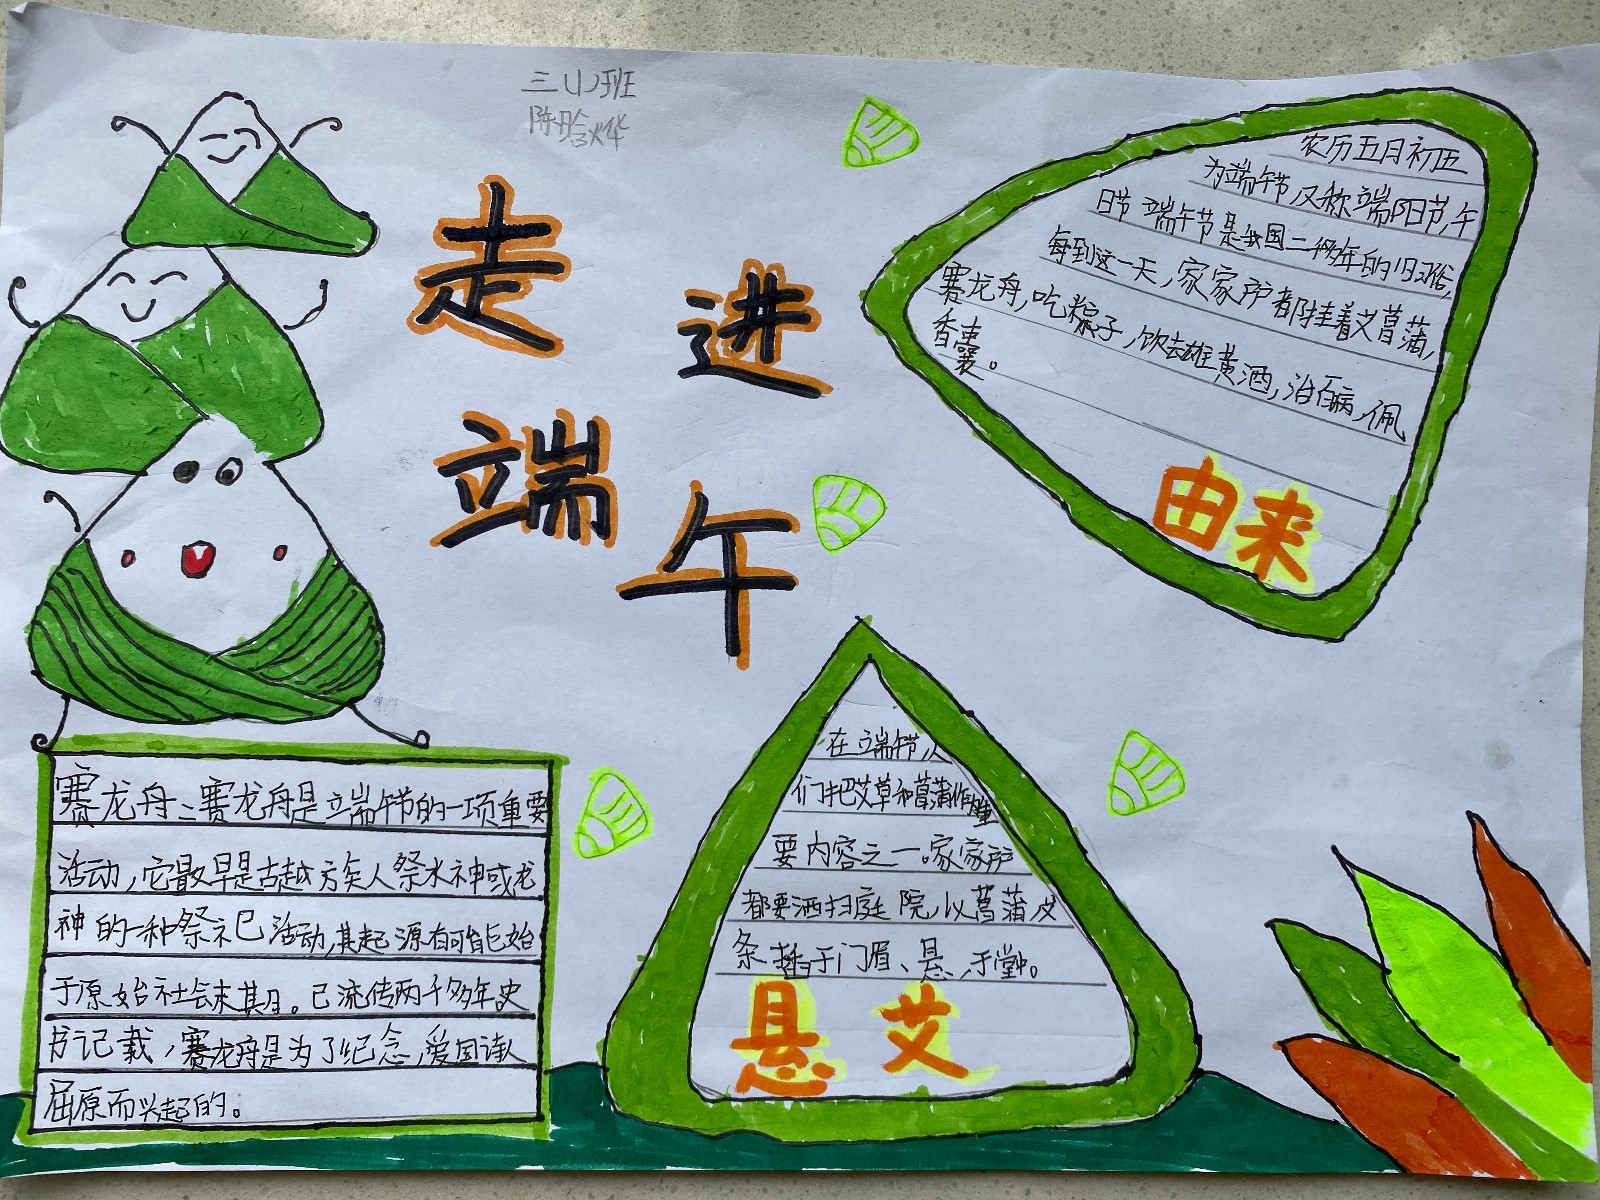 三(1)班
走进
端午
农历五月初五
为端午节,又称端阳节,午
日节 端午节是我国二千多年的旧习俗,
每到这一天,家家户都挂着艾菖蒲,
赛龙舟,吃粽子,饮雄黄酒,治百病,佩
香囊。
由来
赛龙舟:赛龙舟是端午节的一项重要
活动,它最早是古越族人祭水神或龙
神的一种祭祀活动,其起源有可能始
于原始社会末期。已流传两千多年史
书记载,赛龙舟是为了纪念,爱国诗人
屈原而兴起的。
在端午节,人
们把艾草和菖蒲作重
要内容之一。家家户
都要洒扫庭院,以菖蒲
条插于门眉、悬于堂中。
悬艾